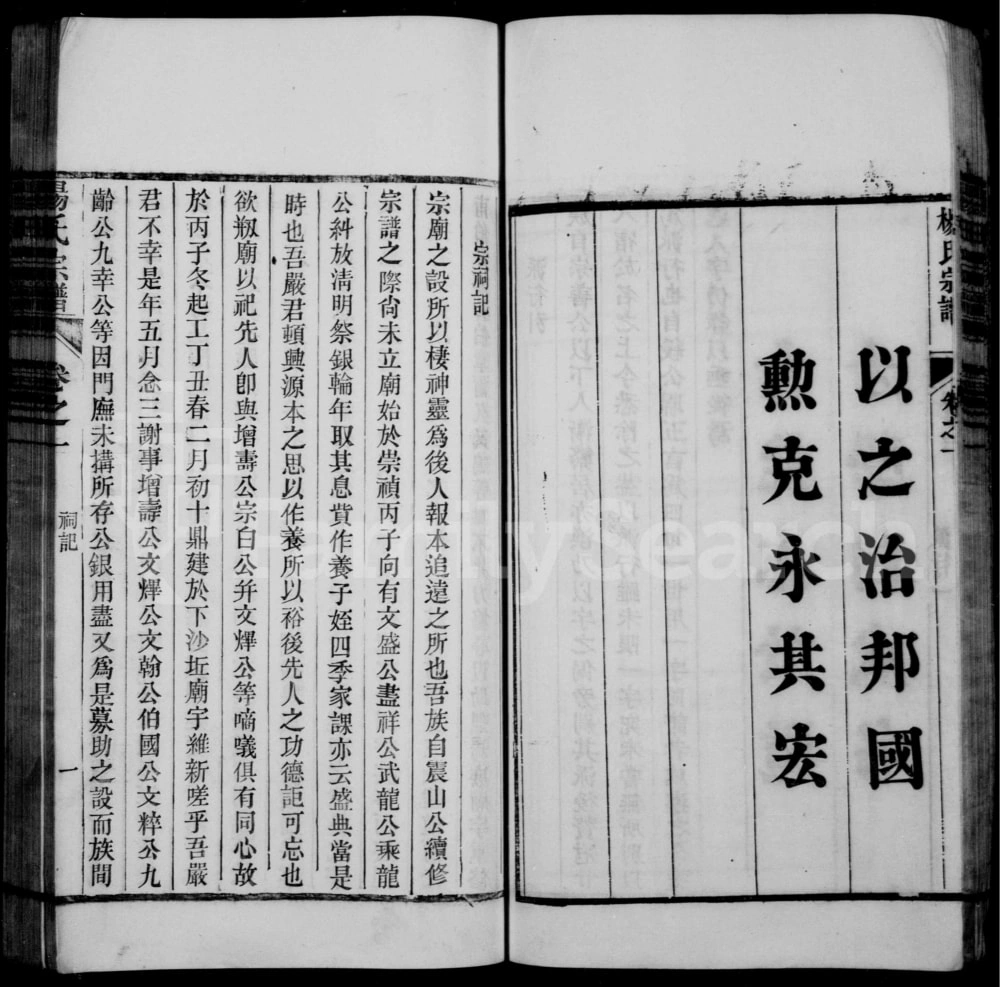 楊氏宗譜
卷之一
以之治邦國
勳克永其宏
宗祠記
宗廟之設所以棲神靈爲後人報本追遠之所也吾族自震山公續修
宗譜之際尙未立廟始於崇禎丙子向有文盛公盡祥公武龍公乘龍
公糾放淸明祭銀輪年取其息貲作養子姪四季家課亦云盛典當是
時也吾嚴君頓興源本之思以作養所以裕後先人之功德詎可忘也
欲剏廟以祀先人卽與增壽公宗白公幷文燡公等嗋㘁俱有同心故
於丙子冬起工丁丑春二月初十鼎建於下沙坵廟宇維新嗟乎吾嚴
君不幸是年五月念三謝事增壽公文燡公文翰公伯國公文粹公九
齡公九幸公等因門廡未搆所存公銀用盡又爲是募助之設而族間
楊氏宗譜
卷之一
祠記
一
FamilySearch